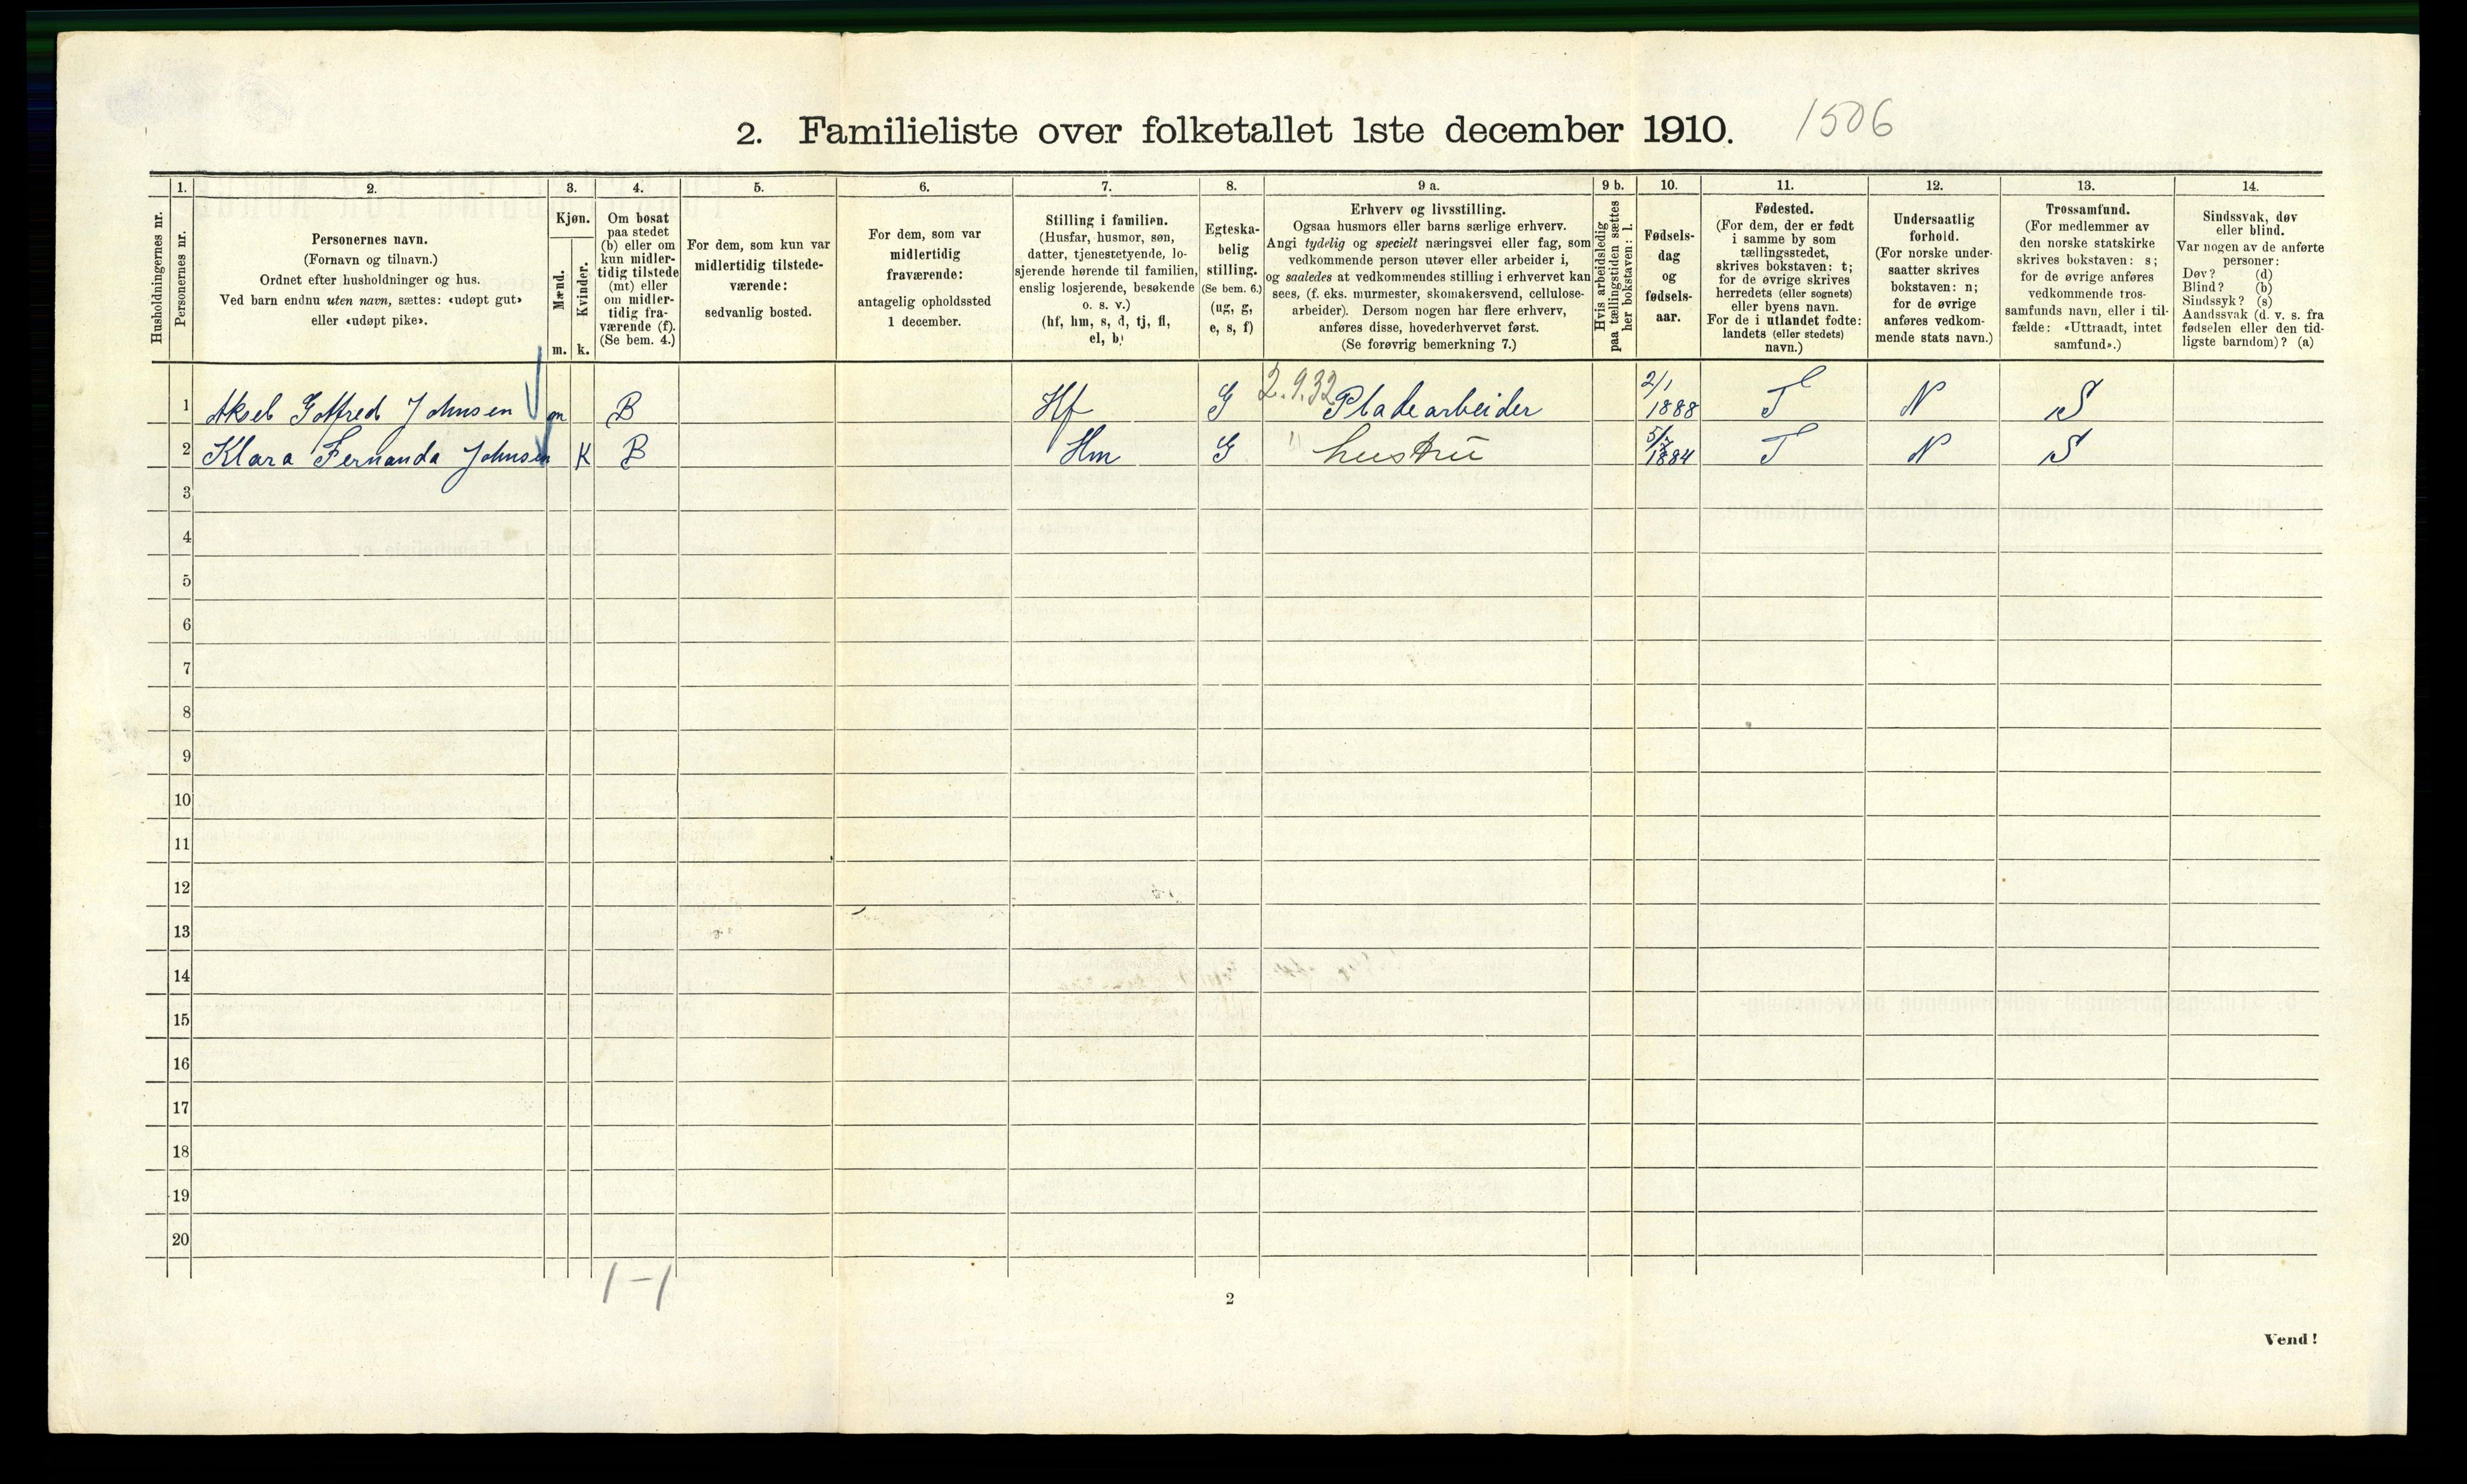 2. Familieliste over folketallet 1ste december 1910. 1506
Husholdningernes nr.
1.
Personernes nr.
2.
Personernes navn.
(Fornavn og tilnavn.)
Ordnet efter husholdninger og hus.
Ved barn endnu uten navn, sættes: «udøpt gut»
eller «udøpt pike».
3.
Kjøn.
Mænd.
m.
Kvinder.
k.
4.
Om bosat
paa stedet
(b) eller om
kun midler-
tidig tilstede
(mt) eller
om midler-
tidig fra-
værende (f).
(Se bem. 4.)
5.
For dem, som kun var
midlertidig tilstede-
værende:
sedvanlig bosted.
6.
For dem, som var
midlertidig
fraværende:
antagelig opholdssted
1 december.
7.
Stilling i familien.
(Husfar, husmor, søn,
datter, tjenestetyende, lo-
sjerende hørende til familien,
enslig losjerende, besøkende
o. s. v.)
(hf, hm, s, d, tj, fl,
el, b)
8.
Egteska-
belig
stilling.
(Se bem. 6.)
(ug, g,
e, s, f)
9 a.
Erhverv og livsstilling.
Ogsaa husmors eller barns særlige erhverv.
Angi tydelig og specielt næringsvei eller fag, som
vedkommende person utøver eller arbeider i,
og saaledes at vedkommendes stilling i erhvervet kan
sees, (f. eks. murmester, skomakersvend, cellulose-
arbeider). Dersom nogen har flere erhverv,
anføres disse, hovederhvervet først.
(Se forøvrig bemerkning 7.)
9 b.
Hvis arbeidsledig
paa tællingstiden sættes
her bokstaven: l.
10.
Fødsels-
dag
og
fødsels-
aar.
11.
Fødested.
(For dem, der er født
i samme by som
tællingsstedet,
skrives bokstaven: t;
for de øvrige skrives
herredets (eller sognets)
eller byens navn.
For de i utlandet fødte:
landets (eller stedets)
navn.)
12.
Undersaatlig
forhold.
(For norske under-
saatter skrives
bokstaven: n;
for de øvrige
anføres vedkom-
mende stats navn.)
13.
Trossamfund.
(For medlemmer av
den norske statskirke
skrives bokstaven: s;
for de øvrige anføres
vedkommende tros-
samfunds navn, eller i til-
fælde: «Uttraadt, intet
samfund».)
14.
Sindssvak, døv
eller blind.
Var nogen av de anførte
personer:
Døv? (d)
Blind? (b)
Sindssyk? (s)
Aandssvak (d. v. s. fra
fødselen eller den tid-
ligste barndom)? (a)
1 Aksel Gotfred Johnsen m B Hf G 2.9.32 Pladearbeider 2/1 1888 T N S
2 Klara Fernanda Johnsen K B Hm G hustru 5/7 1884 T N S
3
4
5
6
7
8
9
10
11
12
13
14
15
16
17
18
19
20
1-1
2
Vend!